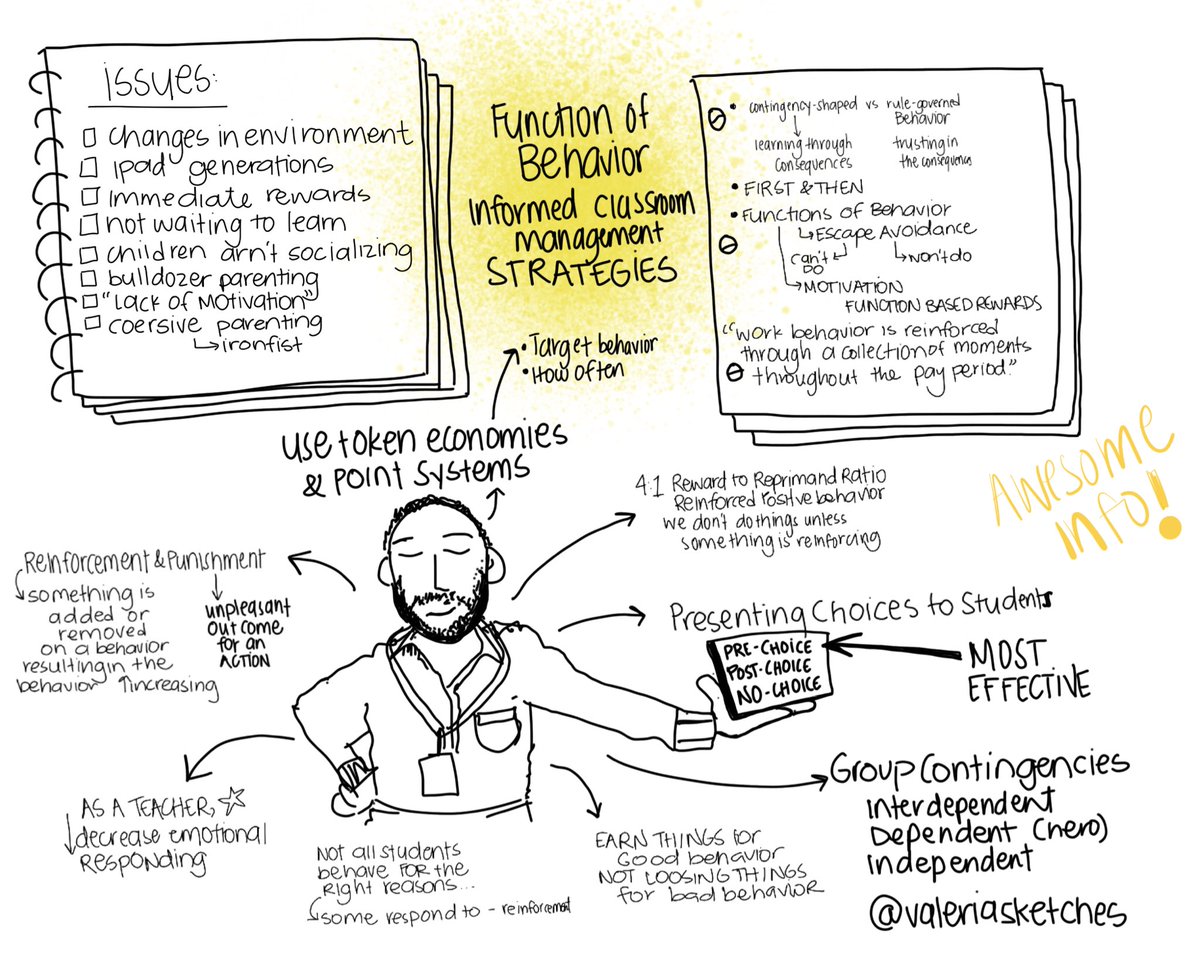 issues:
changes in environment
ipad generations
immediate rewards
not waiting to learn
children arn't socializing
bulldozer parenting
"Lack of Motivation"
coersive parenting
ironfist
Function of
Behavior
informed classroom
management
STRATEGIES
• contingency-shaped vs rule-governed
Behavior
learning through
consequences
trusting in
the consequence
• FIRST & THEN
• Functions of Behavior
Escape Avoidance
can't
DO
won't do
MOTIVATION
FUNCTION BASED REWARDS
"work behavior is reinforced
through a collection of moments
throughout the pay period."
• Target behavior
• How often
use token economies
& point systems
4:1 Reward to Reprimand Ratio
Reinforced Positive behavior
we don't do things unless
something is reinforcing
Awesome
info!
Reinforcement & Punishment
something is
added or
removed
on a behavior
resulting in the
behavior ↑increasing
unpleasant
outcome
for an
ACTION
Presenting Choices to Students
PRE-CHOICE
POST-CHOICE
NO-CHOICE
MOST
EFFECTIVE
AS A TEACHER,
decrease emotional
Responding
Not all students
behave FOR the
Right reasons...
some respond to - reinforcement
EARN THINGS for
Good behavior
NOT LOOSING THINGS
for bad behavior
Group Contingencies
interdependent
Dependent (hero)
independent
@valeriasketches